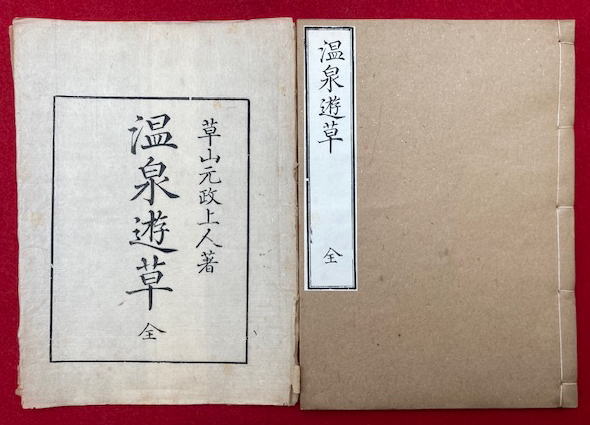 草山元政上人著
温泉遊草
全
温泉遊草
全